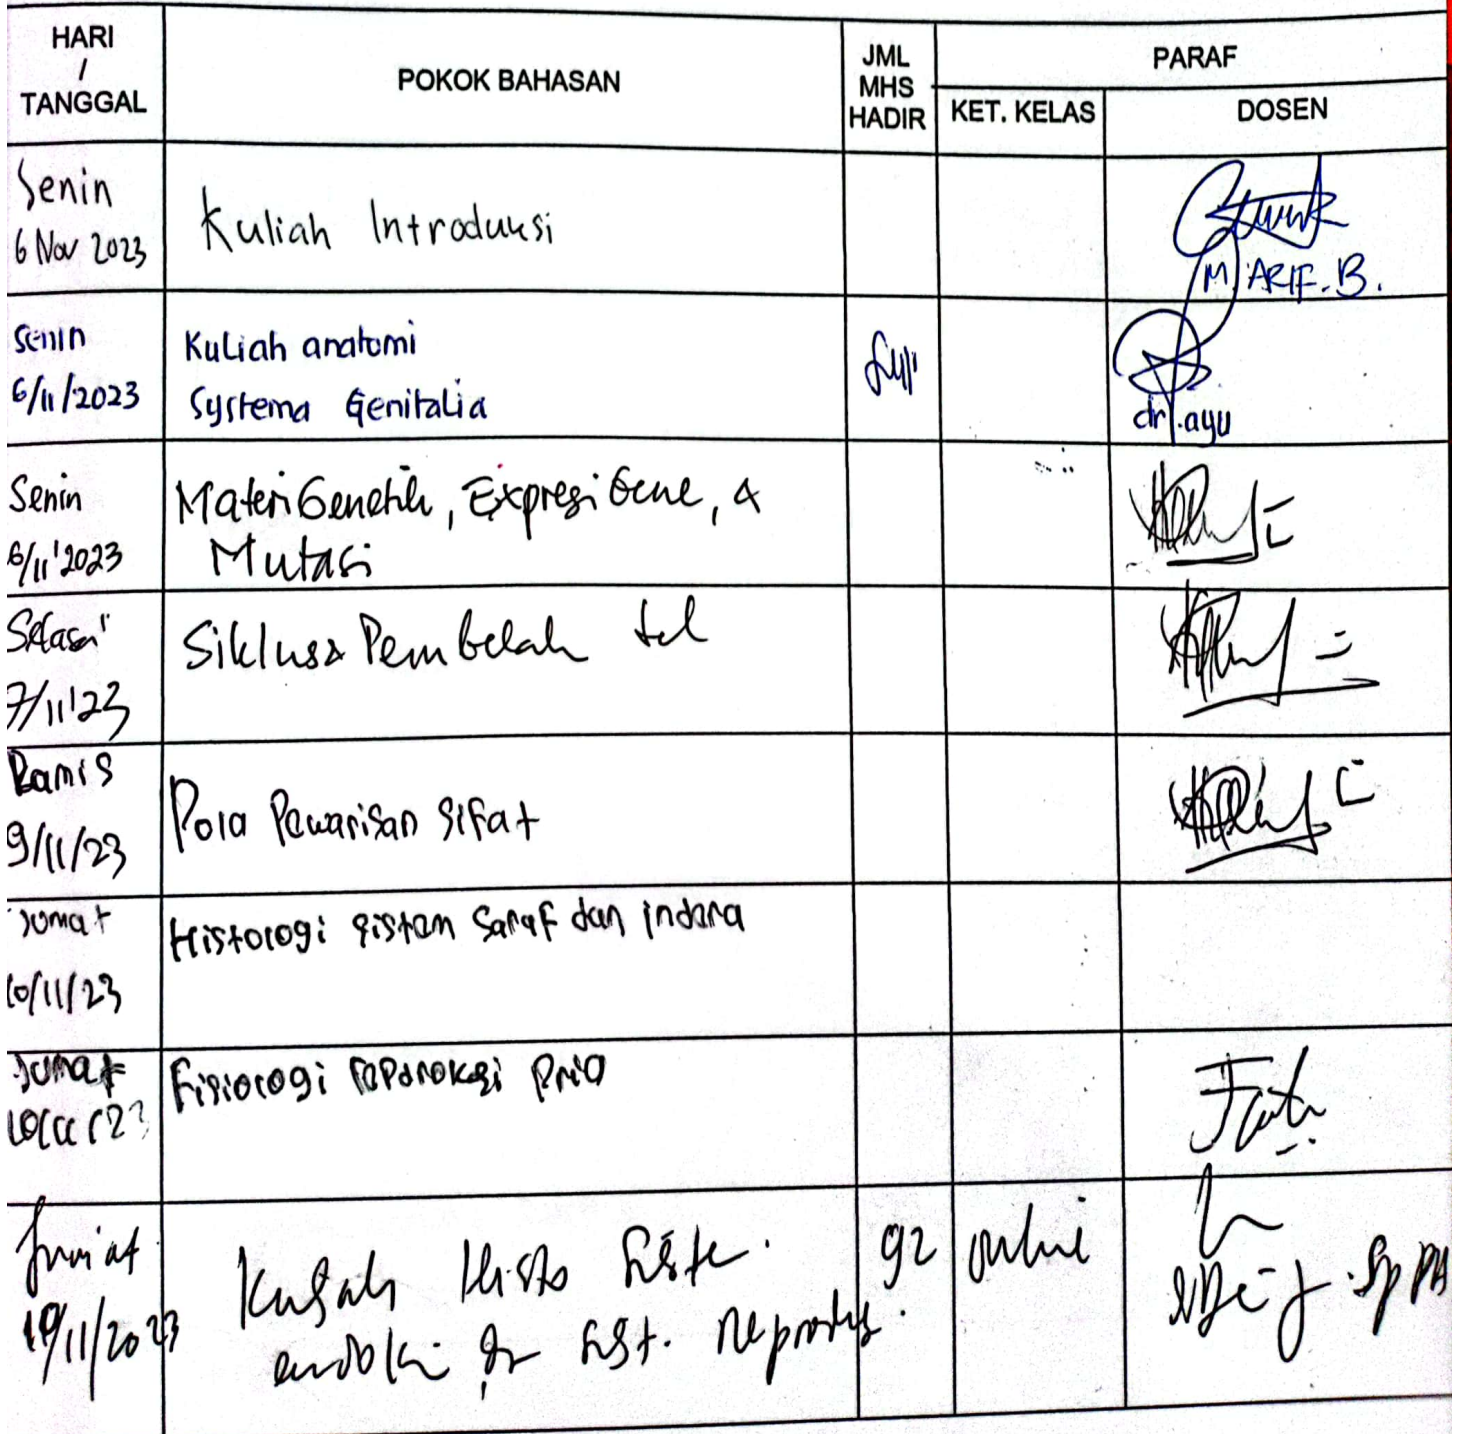 HARI
/
TANGGAL
POKOK BAHASAN
JML
MHS
HADIR
PARAF
KET. KELAS
DOSEN
Senin
6 Nov 2023
Kuliah Introduksi
M. ARIF. B.
Senin
6/11/2023
Kuliah anatomi
Systema Genitalia
full
dr. ayu
Senin
6/11'2023
Materi Genetik, Expresi Gene, &
Mutasi
Selasa
7/11'23
Siklus & Pembelah sel
Kamis
9/11/23
Pola Pewarisan Sifat
Jumat
10/11/23
Histologi sistem saraf dan indera
Jumat
Fisiologi reproduksi pria
Jum'at
/11/2023
Kuliah Histo Siste.
endokri dr sist. Reproduk.
92
online
Sp PA